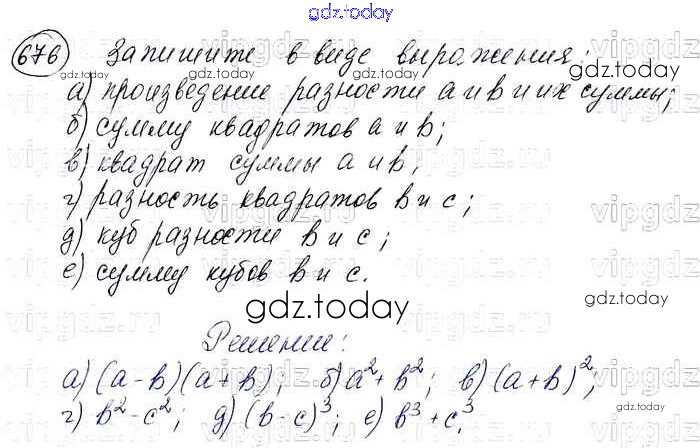 gdz.today
676 Запишите в виде выражения:
gdz.today
а) произведение разности a и b и их суммы;
б) сумму квадратов a и b;
в) квадрат суммы a и b;
г) разность квадратов b и c;
д) куб разности b и c;
е) сумму кубов b и c.
gdz.today
gdz.today
gdz.today
gdz.today
Решение:
а) (a-b)(a+b); б) a²+b²; в) (a+b)²;
г) b²-c²; д) (b-c)³; е) b³+c³.
gdz.today
gdz.today
vipgdz
vipgdz
vipgdz
vipgdz